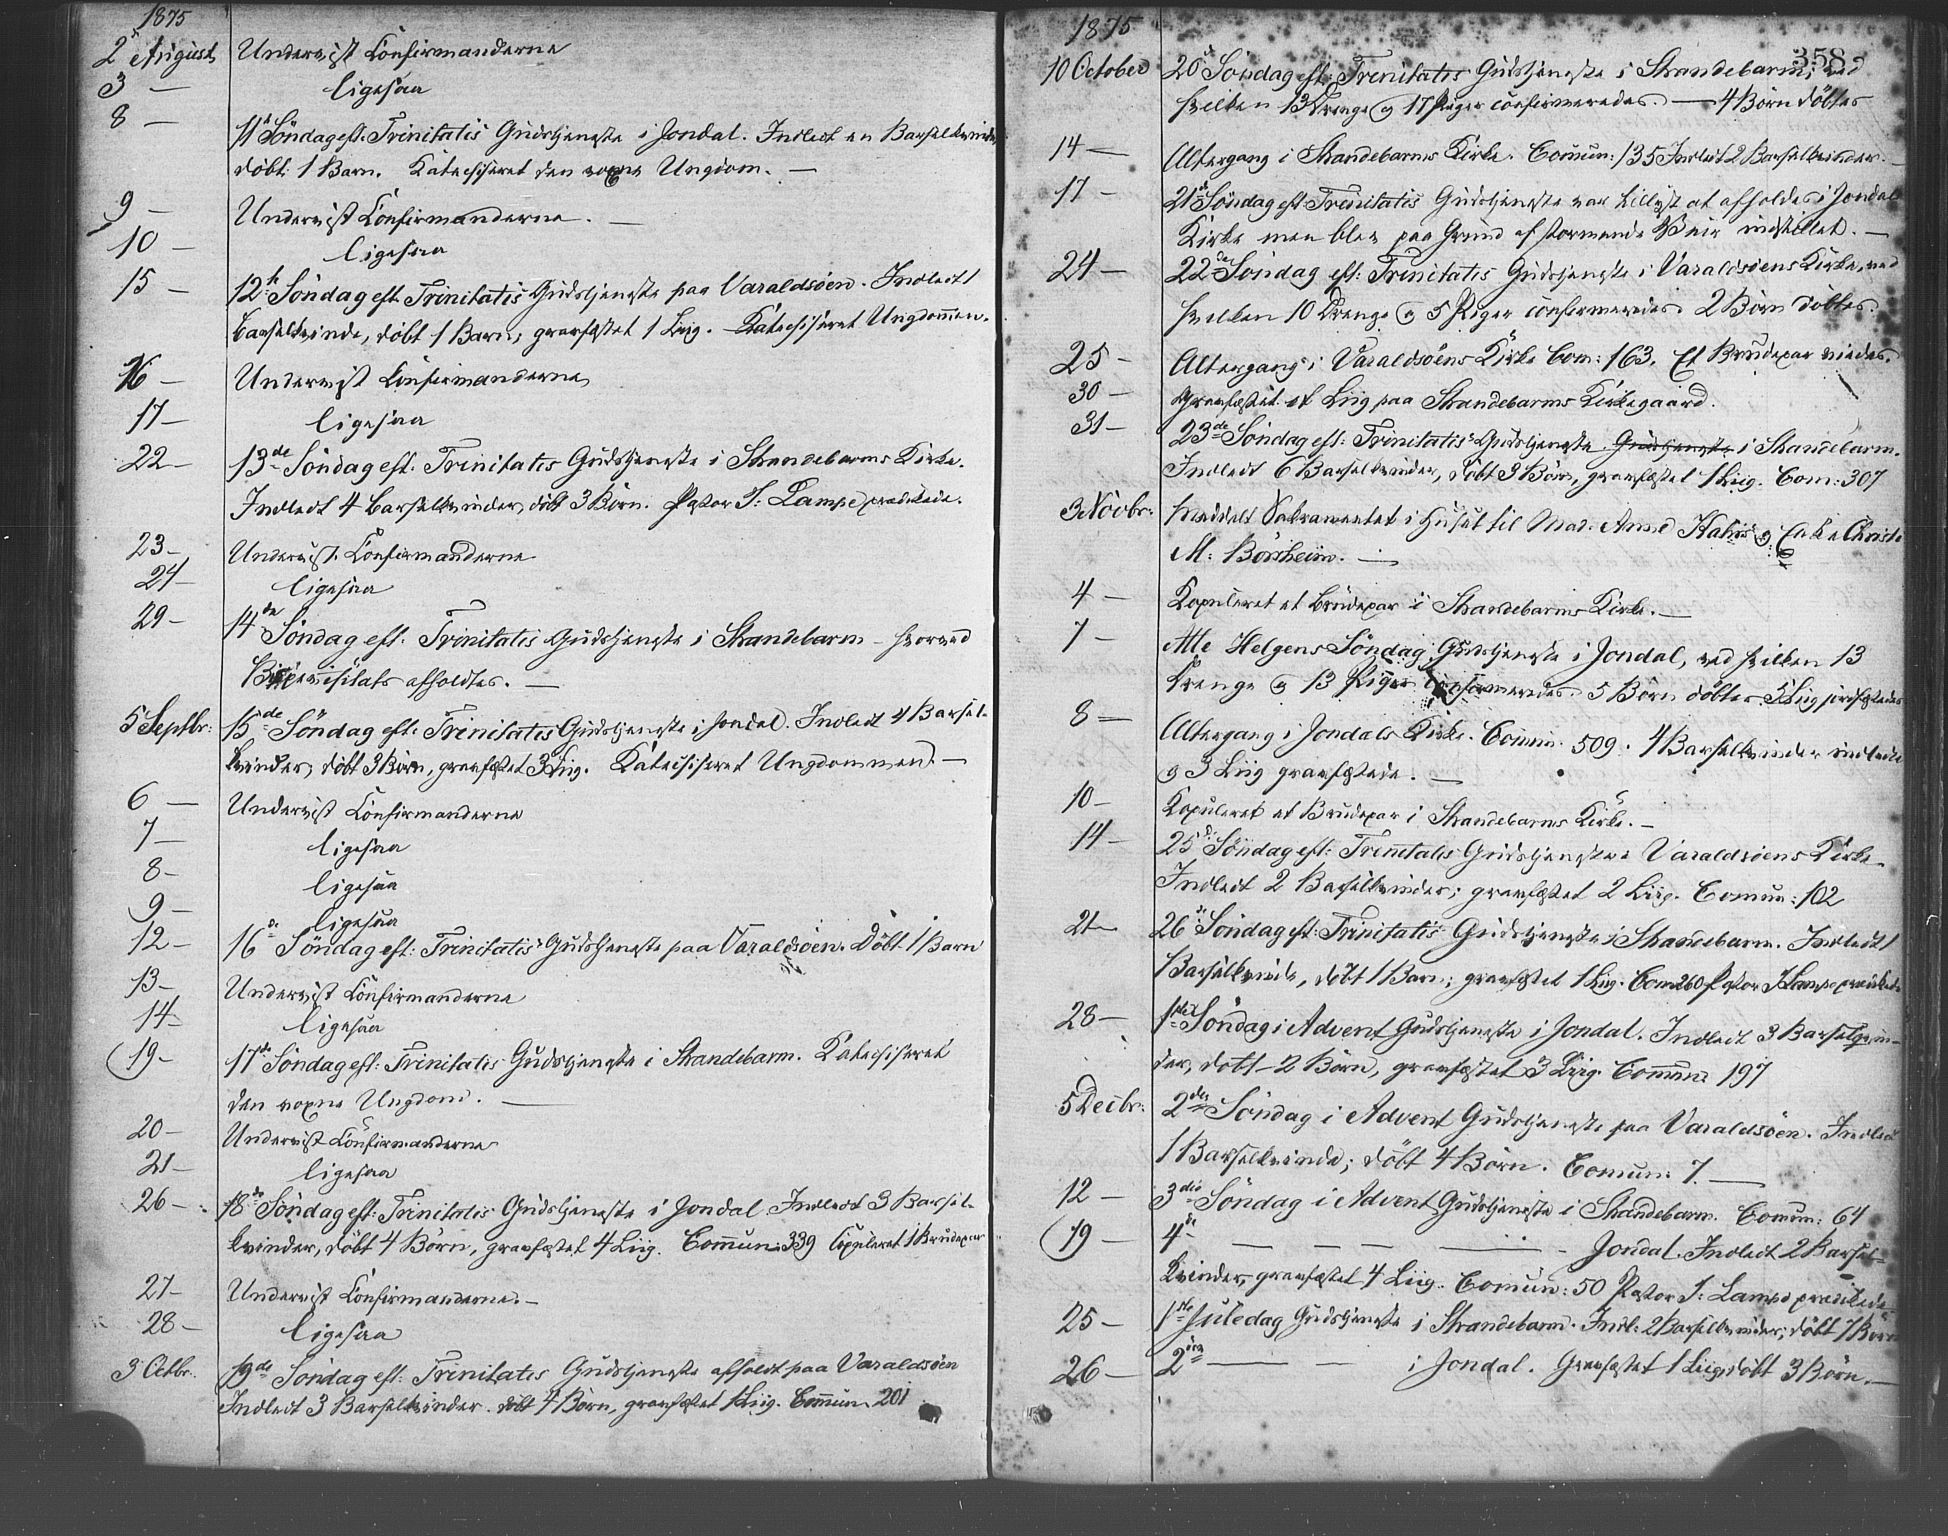 1875
2 August Underviist Confirmanderne
3 — ligesaa
8 — 11te Söndag eft: Trinitatis Gudstjeneste i Jondal. Indledt en Barselkvinde
döbt 1 Barn. Katechiseret den voxne Ungdom. —
9 — Underviist Confirmanderne. —
10 — ligesaa
15 — 12te Söndag eft. Trinitatis Gudstjeneste paa Varaldsöen. Indledt 1
Barselkvinde, döbt 1 Barn, gravfæstet 1 Liig. Katechiseret Ungdommen.
16 — Underviist Confirmanderne
17 — ligesaa
22 — 13de Söndag eft: Trinitatis Gudstjeneste i Strandebarms Kirke.
Indledt 4 Barselkvinder, döbt 3 Börn. Pastor J: Lampe prædikede.
23 — Underviist Confirmanderne
24 — ligesaa
29 — 14de Söndag eft: Trinitatis Gudstjeneste i Strandebarm — hvorved
Bispevisitats afholdtes. —
5 Septbr: 15de Söndag eft: Trinitatis Gudstjeneste i Jondal. Indledt 4 Barsel-
kvinder, döbt 3 Börn, gravfæstet 3 Liig. Katechiseret Ungdommen. —
6 — Underviist Confirmanderne
7 — ligesaa
8 — ligesaa
9 — ligesaa
12 — 16de Söndag eft: Trinitatis Gudstjeneste paa Varaldsöen. Döbt 1 Barn
13 — Underviist Confirmanderne
14 — ligesaa
19 — 17de Söndag eft: Trinitatis Gudstjeneste i Strandebarm. Katechiseret
den voxne Ungdom. —
20 — Underviist Confirmanderne
21 — ligesaa
26 — 18de Söndag eft: Trinitatis Gudstjeneste i Jondal Indledt 3 Barsel-
kvinder, döbt 4 Börn, gravfæstet 4 Liig. Commun: 339 Copuleret 1 Brudepar
27 — Underviist Confirmanderne. —
28 — ligesaa
3 Octbr. 19de Söndag eft: Trinitatis Gudstjeneste afholdt paa Varaldsöen
Indledt 3 Barselkvinder. döbt 4 Börn, gravfæstet 1 Liig. Commun. 201
1875
358
10 October 20de Söndag eft: Trinitatis Gudstjeneste i Strandebarm, ved
hvilken 13 Drenge og 17 Piger confirmeredes. — 4 Börn döbtes
14 — Altergang i Strandebarms Kirke. Comun: 135 Indledt 2 Barselkvinder. —
17 — 21de Söndag eft: Trinitatis Gudstjeneste var tillyst at afholdes i Jondal
Kirke men blev paa Grund af stormende Veir indstillet. —
24 — 22de Söndag eft: Trinitatis Gudstjeneste i Varaldsöens Kirke, ved
hvilken 10 Drenge og 5 Piger confirmeredes 2 Börn döbtes.
25 — Altergang i Varaldsöens Kirke Com: 163. Et Brudepar viedes.
30 — Gravfæstet et Liig paa Strandebarms Kirkegaard.
31 — 23de Söndag eft: Trinitatis Gudstjeneste Gudstjeneste i Strandebarm.
Indledt 6 Barselkvinder, döbt 3 Börn, gravfæstet 1 Liig. Com: 307
3 Novbr: Meddelt Sakramentet i Huset til Mad: Anne Hahrs og Enke Christi
M: Börsheim. —
4 — Kopuleret et Brudepar i Strandebarms Kirke. —
7 — Alle Helgens Söndag Gudstjeneste i Jondal, ved hvilken 13
Drenge og 13 Piger confirmeredes 5 Börn döbtes 5 Liig jordfæstedes
8 — Altergang i Jondals Kirke. Comun: 509. 4 Barselkvinder indledte
og 3 Liig gravfæstede. —
10 — Kopuleret et Brudepar i Strandebarms Kirke. —
14 — 25de Söndag eft: Trinitatis Gudstjeneste i Varaldsöens Kirke
Indledt 2 Barselkvinder; gravfæstet 2 Liig. Comun: 102
21 — 26de Söndag eft: Trinitatis Gudstjeneste i Strandebarm. Indledt 1
Barselkvinde, döbt 1 Barn; gravfæstet 1 Liig. Com 260 Pastor J Lampe prædikede
28 — 1ste Söndag i Advent Gudstjeneste i Jondal. Indledt 3 Barselqvin-
der, döbt 2 Börn, gravfæstet 3 Liig. Commun 197
5 Decbr: 2den Söndag i Advent Gudstjeneste paa Varaldsöen. Indledt
1 Barselkvinde; döbt 4 Börn. Comun: 7. —
12 — 3die Söndag i Advent Gudstjeneste i Strandebarm. Comun: 64
19 — 4de — — — — Jondal. Indledt 2 Barsel-
kvinder, gravfæstet 4 Liig. Comun: 50 Pastor J: Lampe prædikede
25 — 1ste Juledag Gudstjeneste i Strandebarm. Indl: 2 Barselkvinder; döbt 7 Börn
26 — 2den — — i Jondal. Gravfæstet 1 Liig, döbt 3 Börn. —